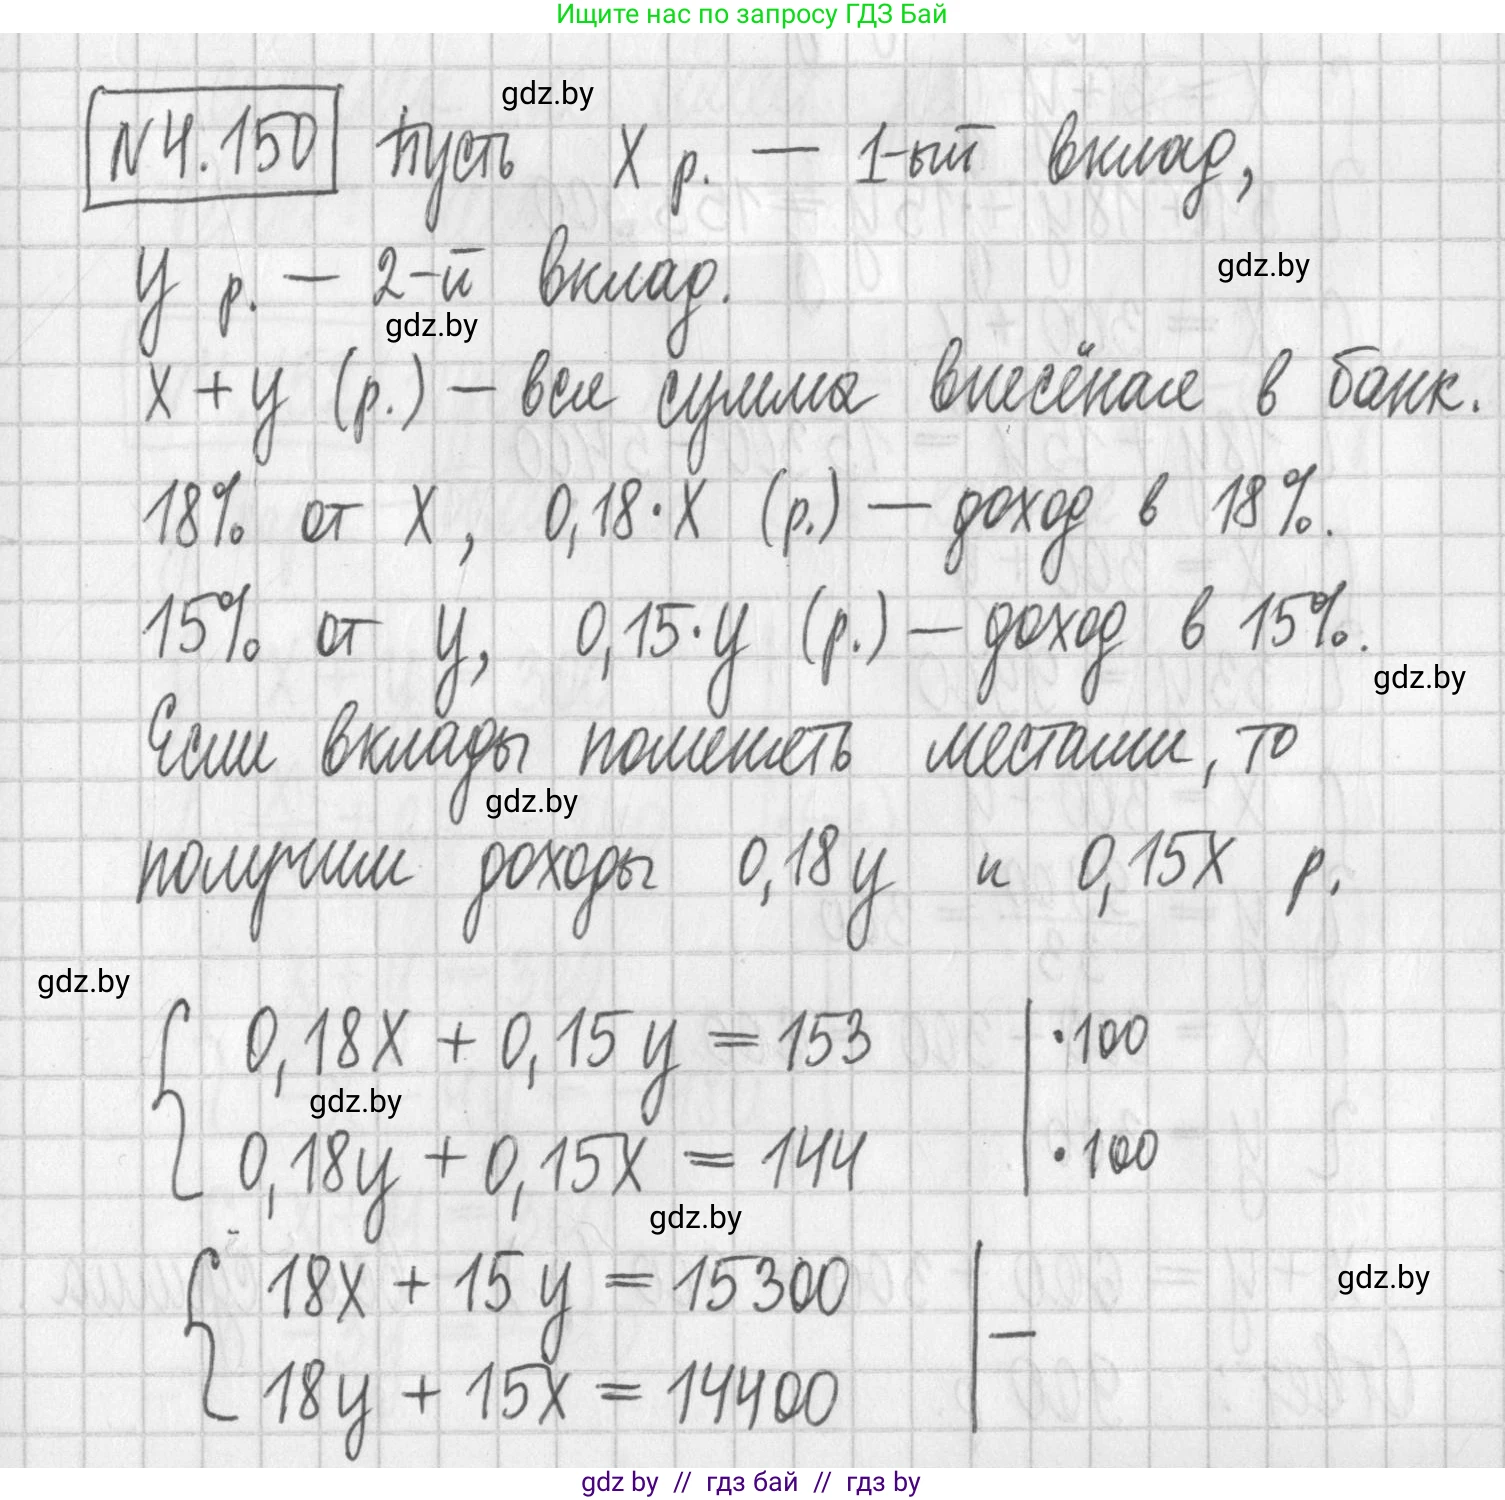 Ищите нас по запросу ГДЗ Бай
gdz.by
N4.150 Пусть x р. — 1-ый вклад,
y р. — 2-й вклад.
gdz.by
gdz.by
x + y (р.) — вся сумма внесёная в банк.
18% от x, 0,18·x (р.) — доход в 18%.
15% от y, 0,15·y (р.) — доход в 15%.
gdz.by
Если вклады поменять местами, то
gdz.by
получим доходы 0,18y и 0,15x р.
gdz.by
0,18x + 0,15y = 153 | ·100
gdz.by
0,18y + 0,15x = 144 | ·100
gdz.by
18x + 15y = 15300 | —
gdz.by
18y + 15x = 14400
gdz by // гдз бай // гдз by